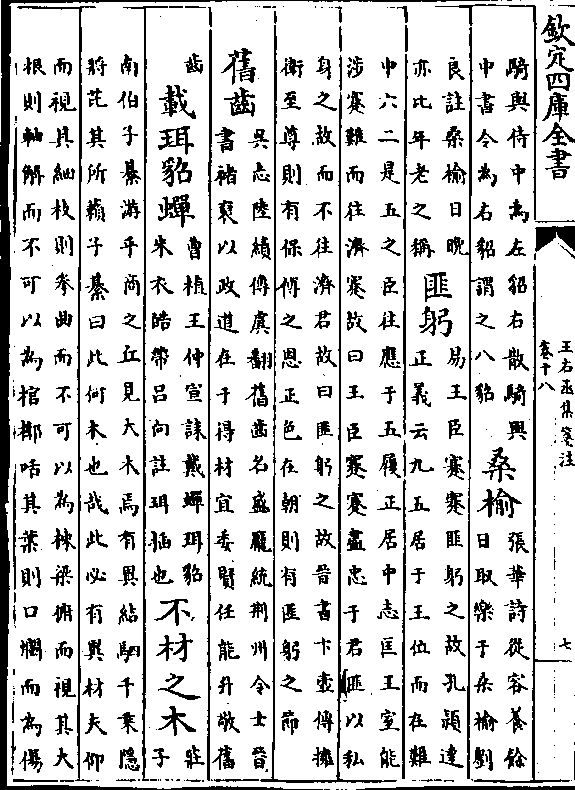 欽定四庫全書
王右丞集箋注
卷十八
七
騎與侍中為左貂右散騎與
中書令為右貂謂之八貂
桑榆
張華詩從容養餘
日取樂于桑榆劉
良註桑榆日晚
亦比年老之稱
匪躬
易王臣蹇蹇匪躬之故孔穎達
正義云九五居于王位而在難
中六二是五之臣往應于五履正居中志匡王室能
涉蹇難而往濟蹇故曰王臣蹇蹇盡忠于君匪以私
身之故而不往濟君故曰匪躬之故晉書卞壼傳擁
衛至尊則有保傅之恩正色在朝則有匪躬之節
舊齒
吳志陸績傳虞翻舊齒名盛龐統荆州令士晉
書褚裒以政道在于得材宜委賢任能升敬舊
齒
載珥貂蟬
曹植王仲宣誄戴蟬珥貂
朱衣皓帶呂向註珥插也
不材之木
莊
子
南伯子綦游乎商之丘見大木焉有異結駟千乘隱
將芘其所藾子綦曰此何木也哉此必有異材夫仰
而視其細枝則拳曲而不可以為棟梁俯而視其大
根則軸解而不可以為棺槨咶其葉則口爛而為傷